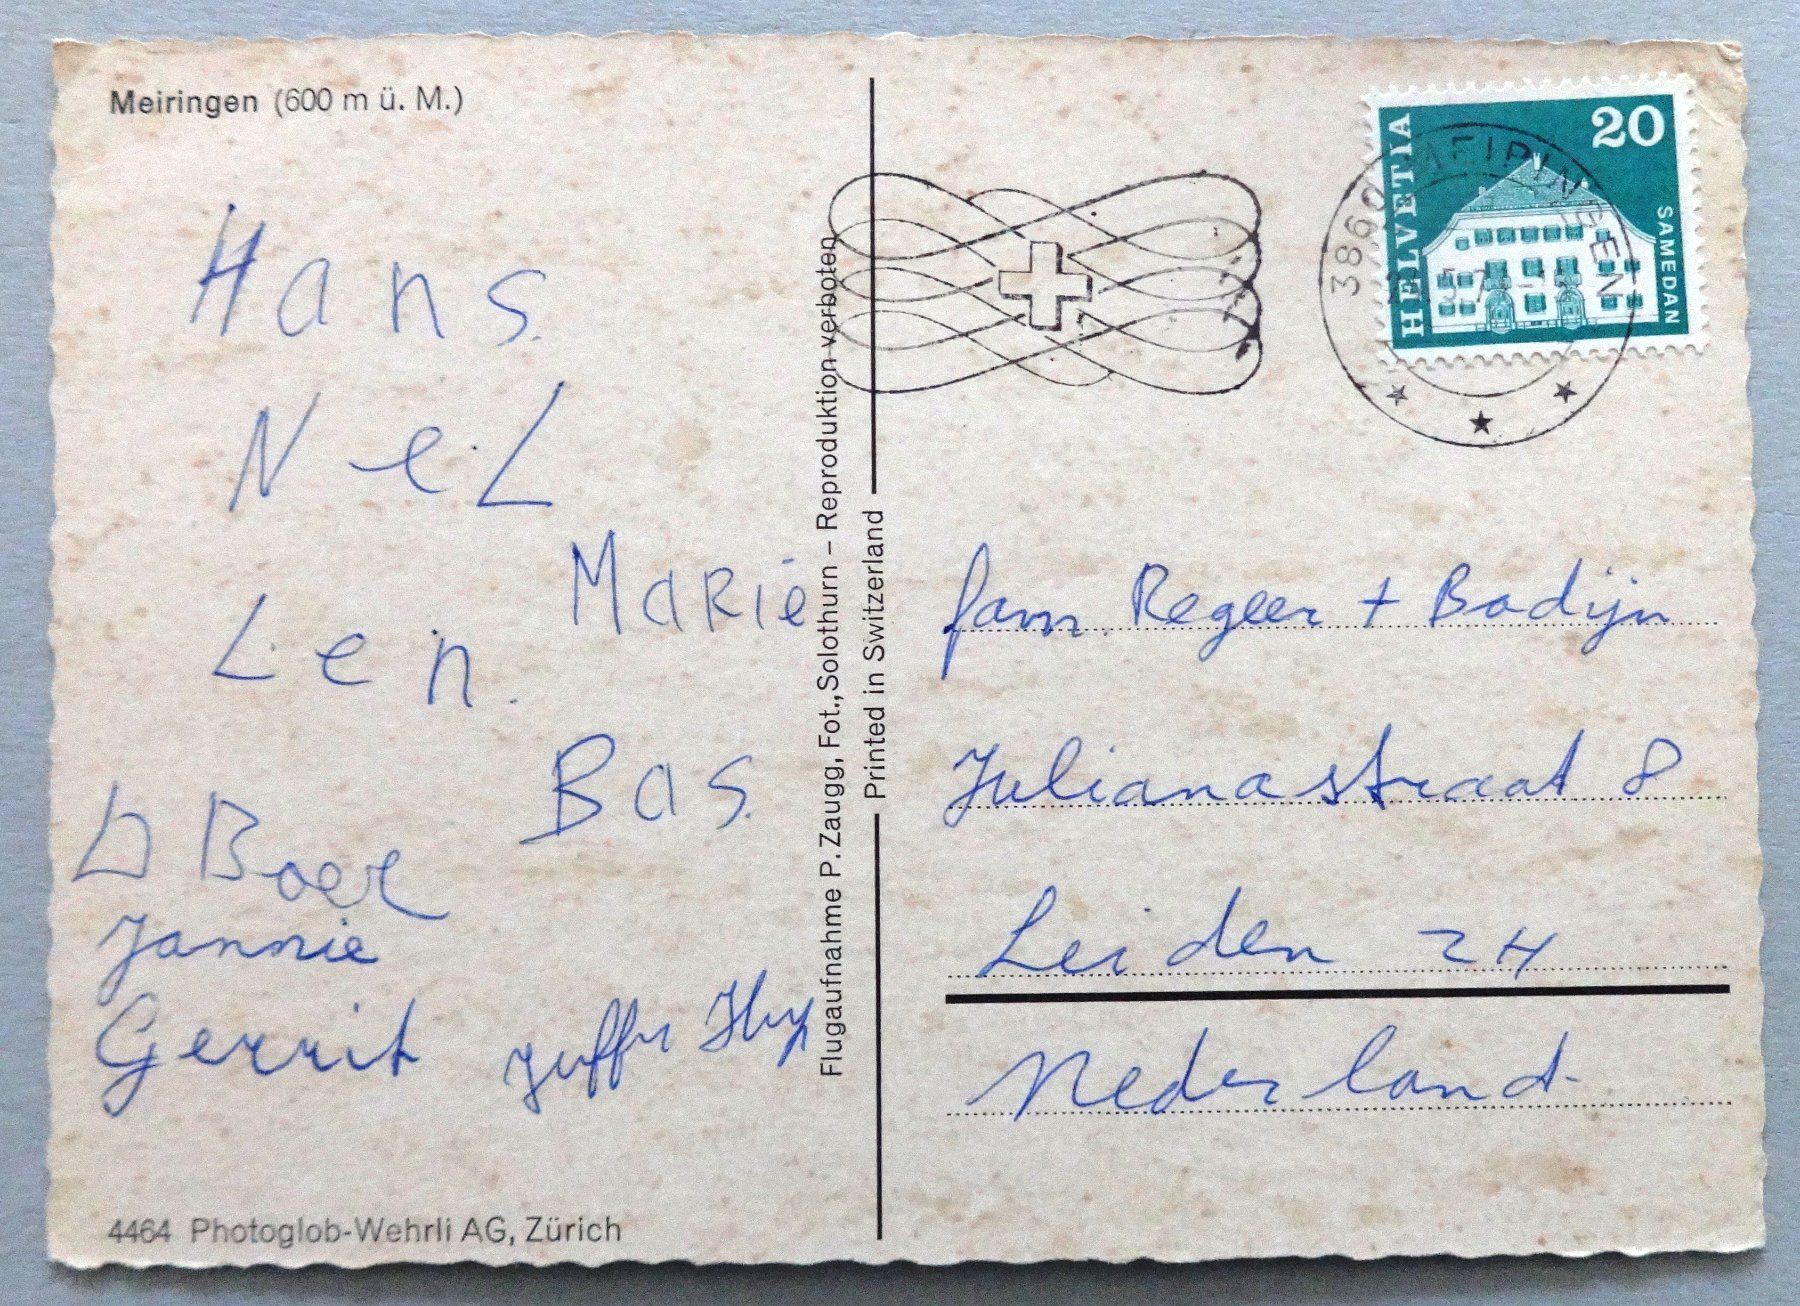 Meiringen (600 m ü. M.)
Hans.
NeL
Marie
Len.
Bas.
D Boer
Jannie
Gerrit
4464 Photoglob-Wehrli AG, Zürich
Flugaufnahme P. Zaugg, Fot., Solothurn – Reproduktion verboten
Printed in Switzerland
HELVETIA
20
SAMEDAN
3860 MEIRINGEN
fam. Regeer + Bodijn
Julianastraat 8
Leiden ZH
Nederland